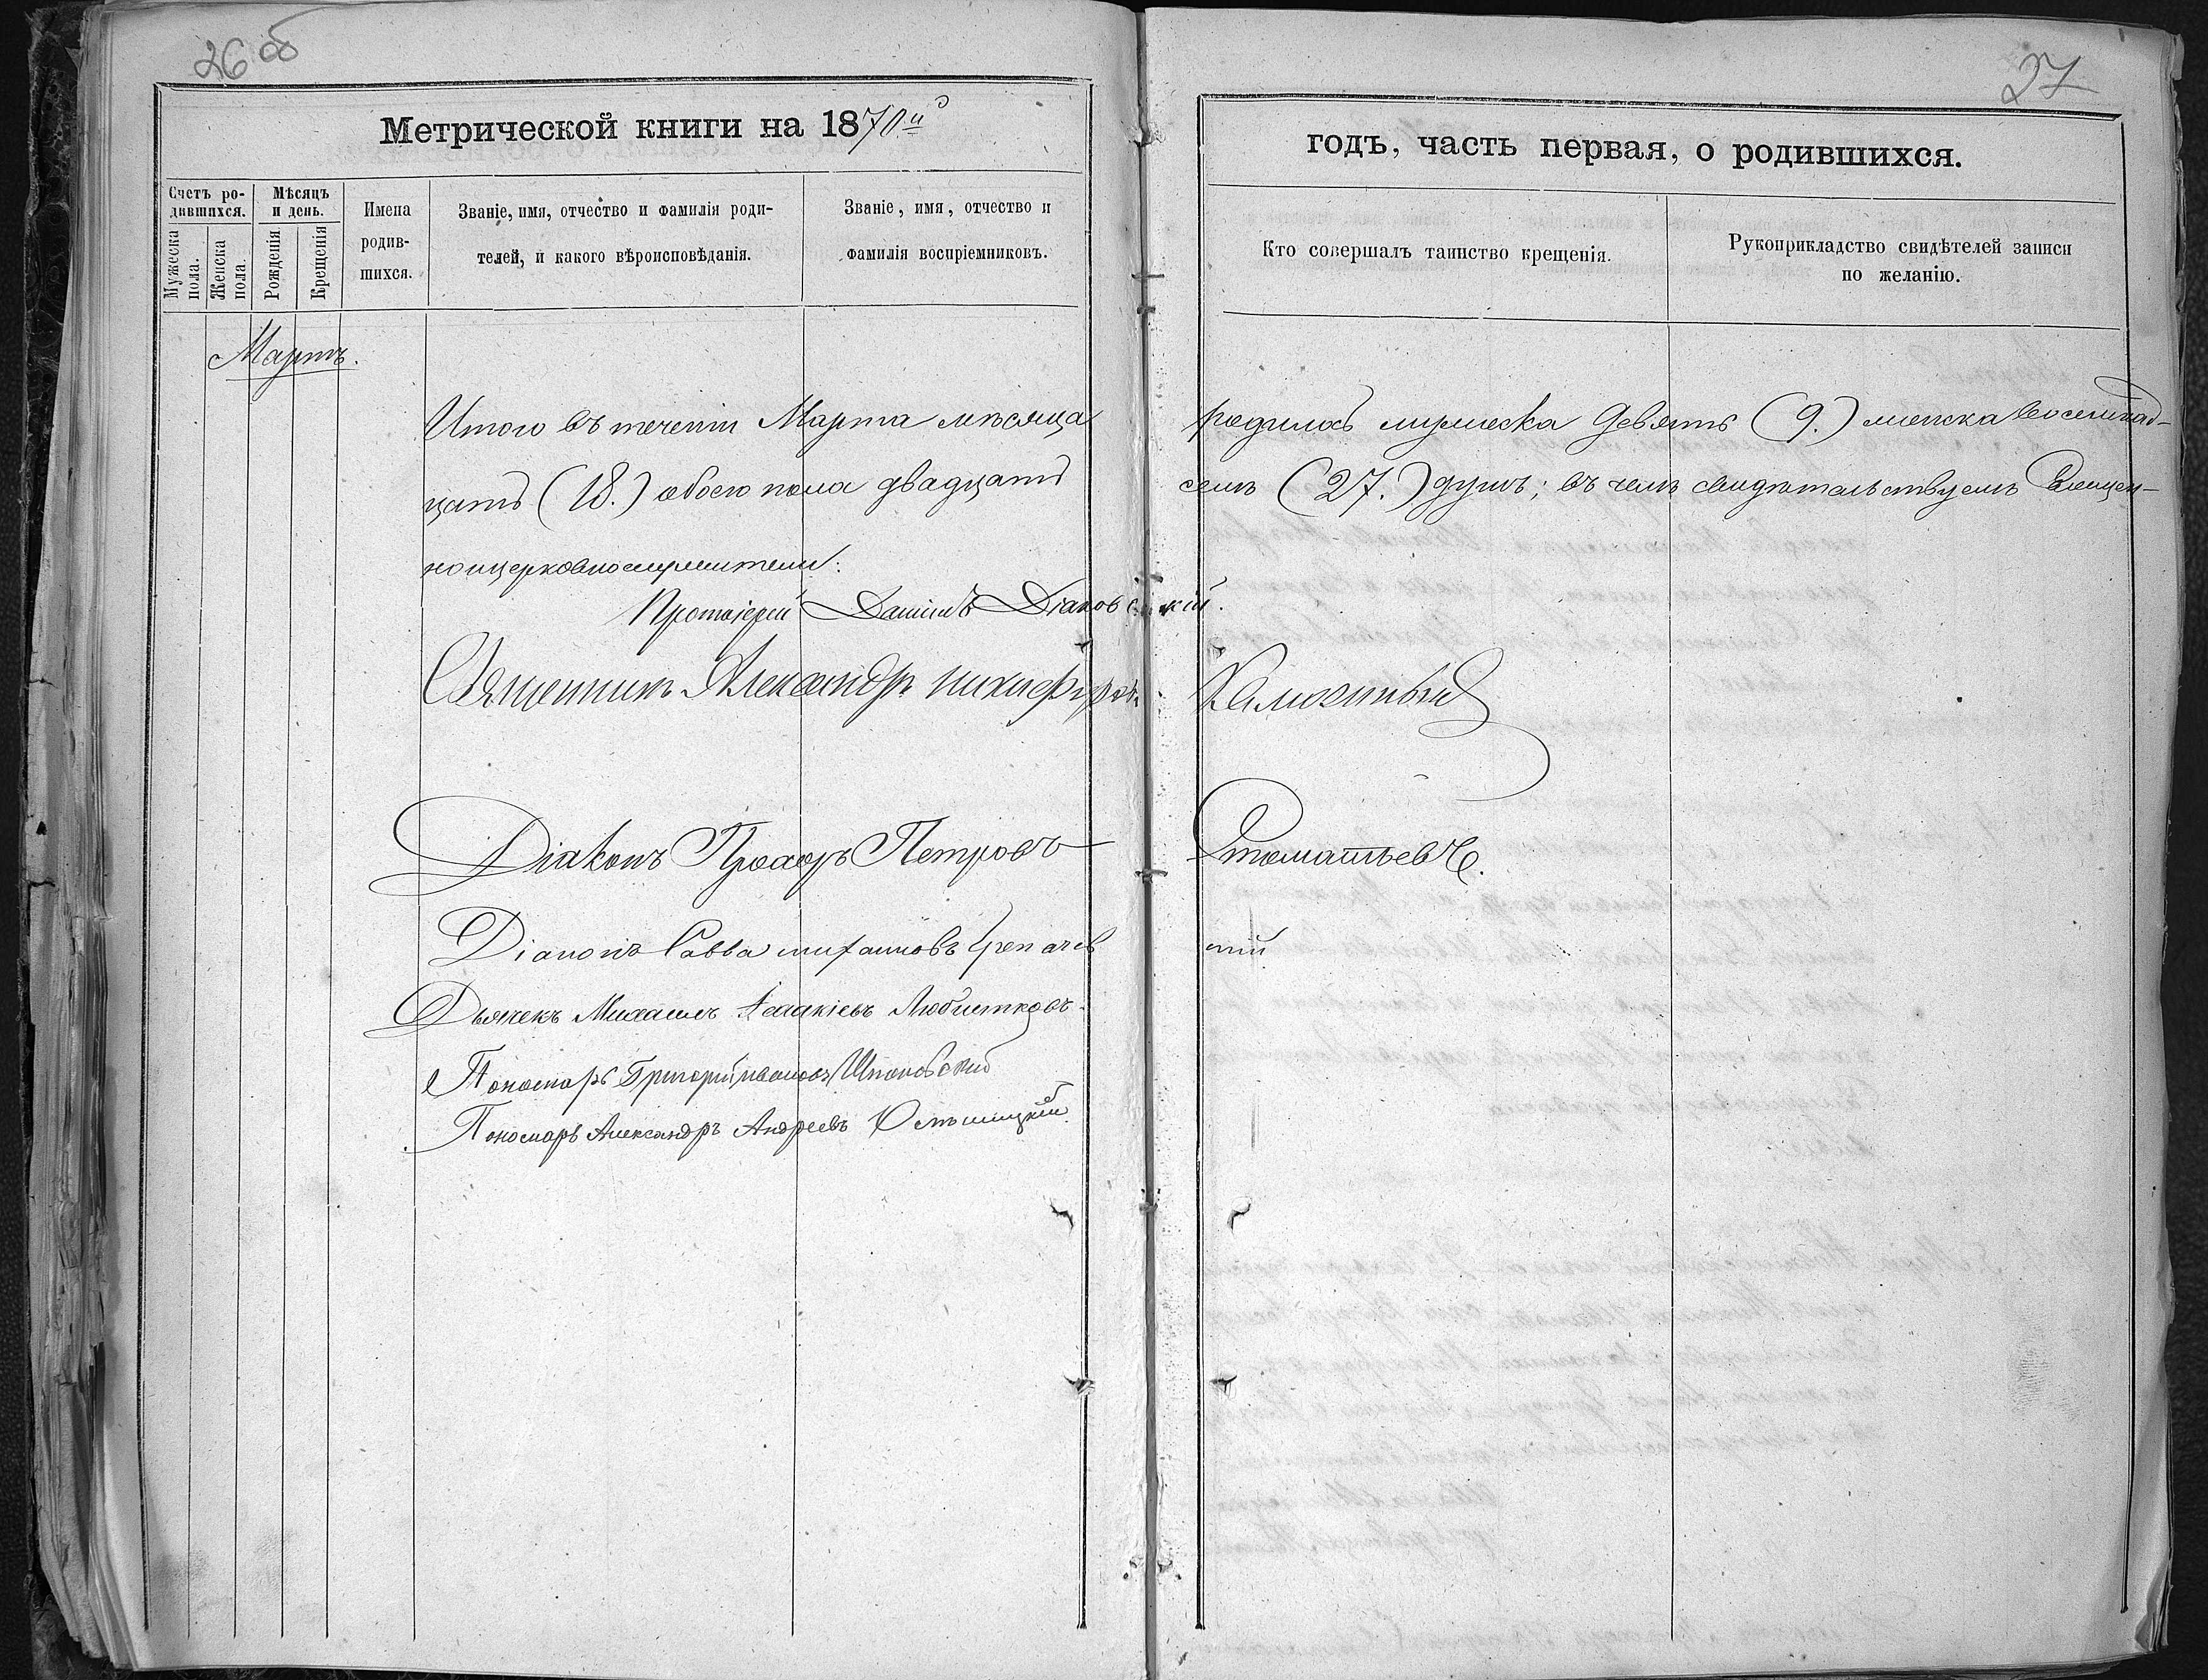 26 об
27
Метрической книги на 1870й
годъ, часть первая, о родившихся.
Счетъ ро-
дившихся.
Мѣсяцъ
и день.
Мужеска
пола.
Женска
пола.
Рожденія
Крещенія
Имена
родив-
шихся.
Званіе, имя, отчество и фамилія роди-
телей, и какого вѣроисповѣданія.
Званіе, имя, отчество и
фамилія воспріемниковъ.
Кто совершалъ таинство крещенія.
Рукоприкладство свидѣтелей записи
по желанію.
Мартъ.
Итого въ теченіи Марта мѣсяца родилось мужеска девять (9.) женска восемнад-
цать (18.) обоего пола двадцать семь (27.) душъ; въ чемъ свидѣтельствуемъ Священ-
ноцерковнослужители:
Протоіерей Даніилъ Діаковскій.
Священникъ Александръ Никифоровъ
Діаконъ Прохоръ Петровъ
Діаконъ Савва Михаиловъ
Дьячекъ Михаилъ Іоакіевъ Любистковъ.
Пономарь Григорій Ивановъ
Пономарь Александръ Андреевъ